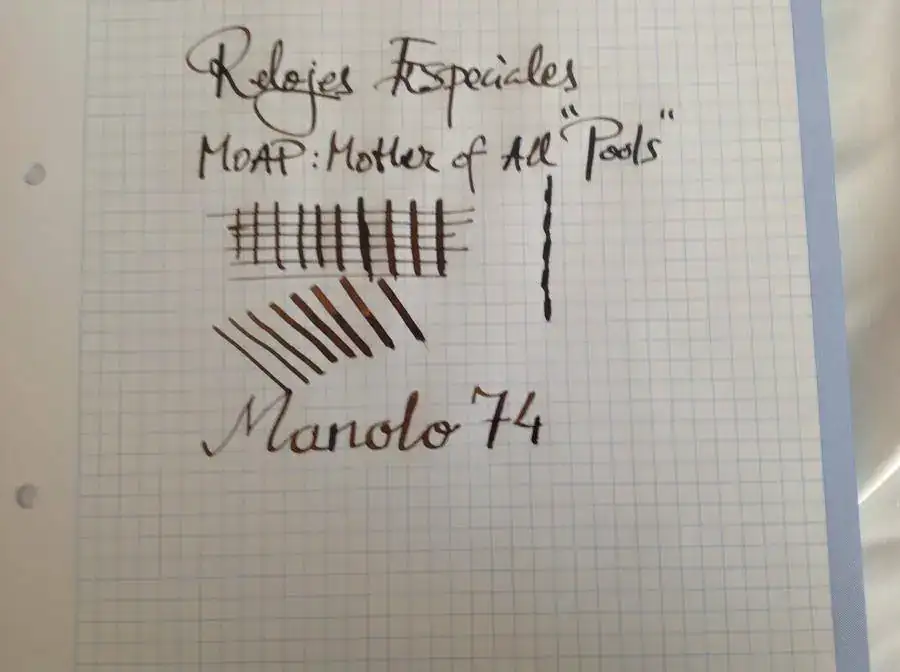 Relojes Especiales
MOAP: Mother of All "Pools"
Manolo 74